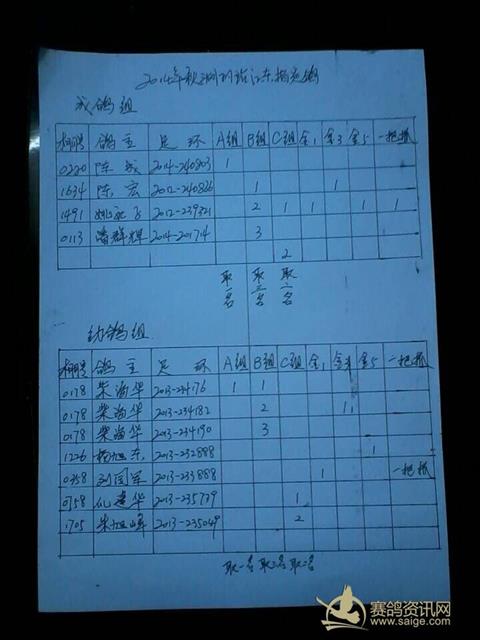 成鸽组
棚号 鸽主 足环 A组 B组 C组 金1 金3 金5 一把抓
0220 陈 2014-240803 1
1634 陈宏 2012-240826 1 1
1491 2012-239321 2 1 1 1 1
0113 潘群辉 2014-201714 3
2
取一名 取三名 取二名
幼鸽组
棚号 鸽主 足环 A组 B组 C组 金1 金3 金5 一把抓
0178 柴海华 2013-234176 1 1
0178 柴海华 2013-234182 2 1
0178 柴海华 2013-234190 3
1226 杨旭东 2013-232888 1
0358 刘国军 2013-233888 1 一把抓
0758 建华 2013-235779 1
1705 朱旭峰 2013-235049 2
取一名 取三名 取二名
赛鸽资讯网
www.saige.com